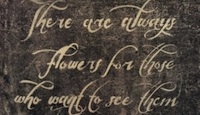 There are always
flowers for those
who want to see them